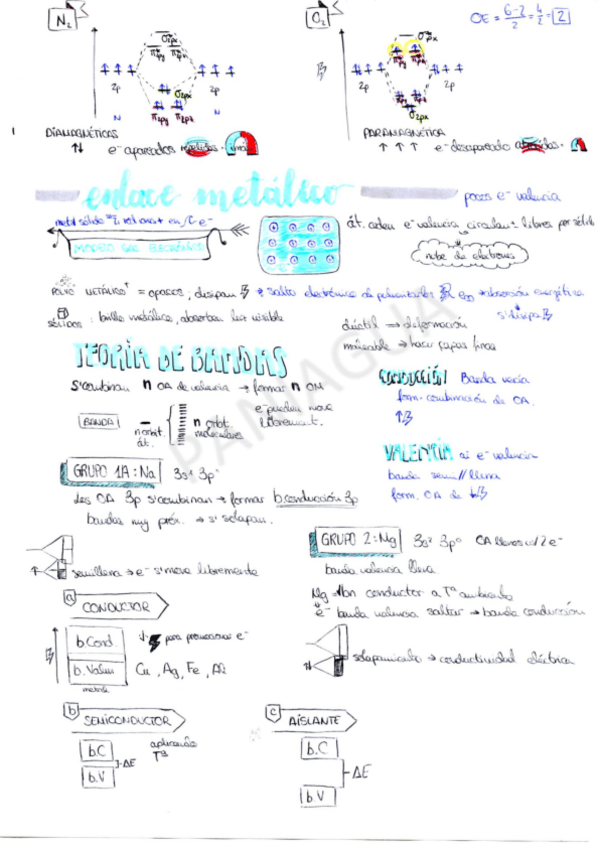 N₂
O₂
OE = 6-2/2 = 4/2 = 2
σ2px
π2py π2pz
2p 2p
N N
DIAMAGNÉTICAS
e⁻ apareados
PARAMAGNÉTICA
e⁻ desapareado
enlace metálico
pocos e⁻ valencia
MODELO GAS ELECTRÓNICO
át. ceden e⁻ valencia circulan ± libres por sólido
nube de electrones
POLVO METÁLICO = opacos; disipan
salto electrónico de
absorción energética
s'disipa
SÓLIDOS : brillo metálico, absorben luz visible
dúctil → deformación
maleable → hacer capas finas
TEORÍA DE BANDAS
s'combinan n OA de valencia → forman n OM
BANDA
n orbit. át.
n orbit. moleculares
e⁻ pueden move libremente.
CONDUCCIÓN Banda vacía
form. combinación de OA.
VALENCIA
e⁻ valencia
banda semi//llena
form. OA de
GRUPO 1A : Na 3s¹ 3p⁰
Los OA 3p s'combinan → forman b.conducción 3p
bandas muy próx. → s'solapan.
semillena → e⁻ s'move libremente
GRUPO 2 : Mg 3s² 3p⁰ OA llenos w/2 e⁻
banda valencia llena
conductor a Tª ambiente
e⁻ banda valencia saltar → banda conducción
→ conductividad eléctrica
a CONDUCTOR
b.Cond.
b.Valen
para promocionar e⁻
Cu, Ag, Fe, Al
b SEMICONDUCTOR
b.C
b.V
ΔE
aplicando Tª
c AISLANTE
b.C
ΔE
b.V
PANIAGUA